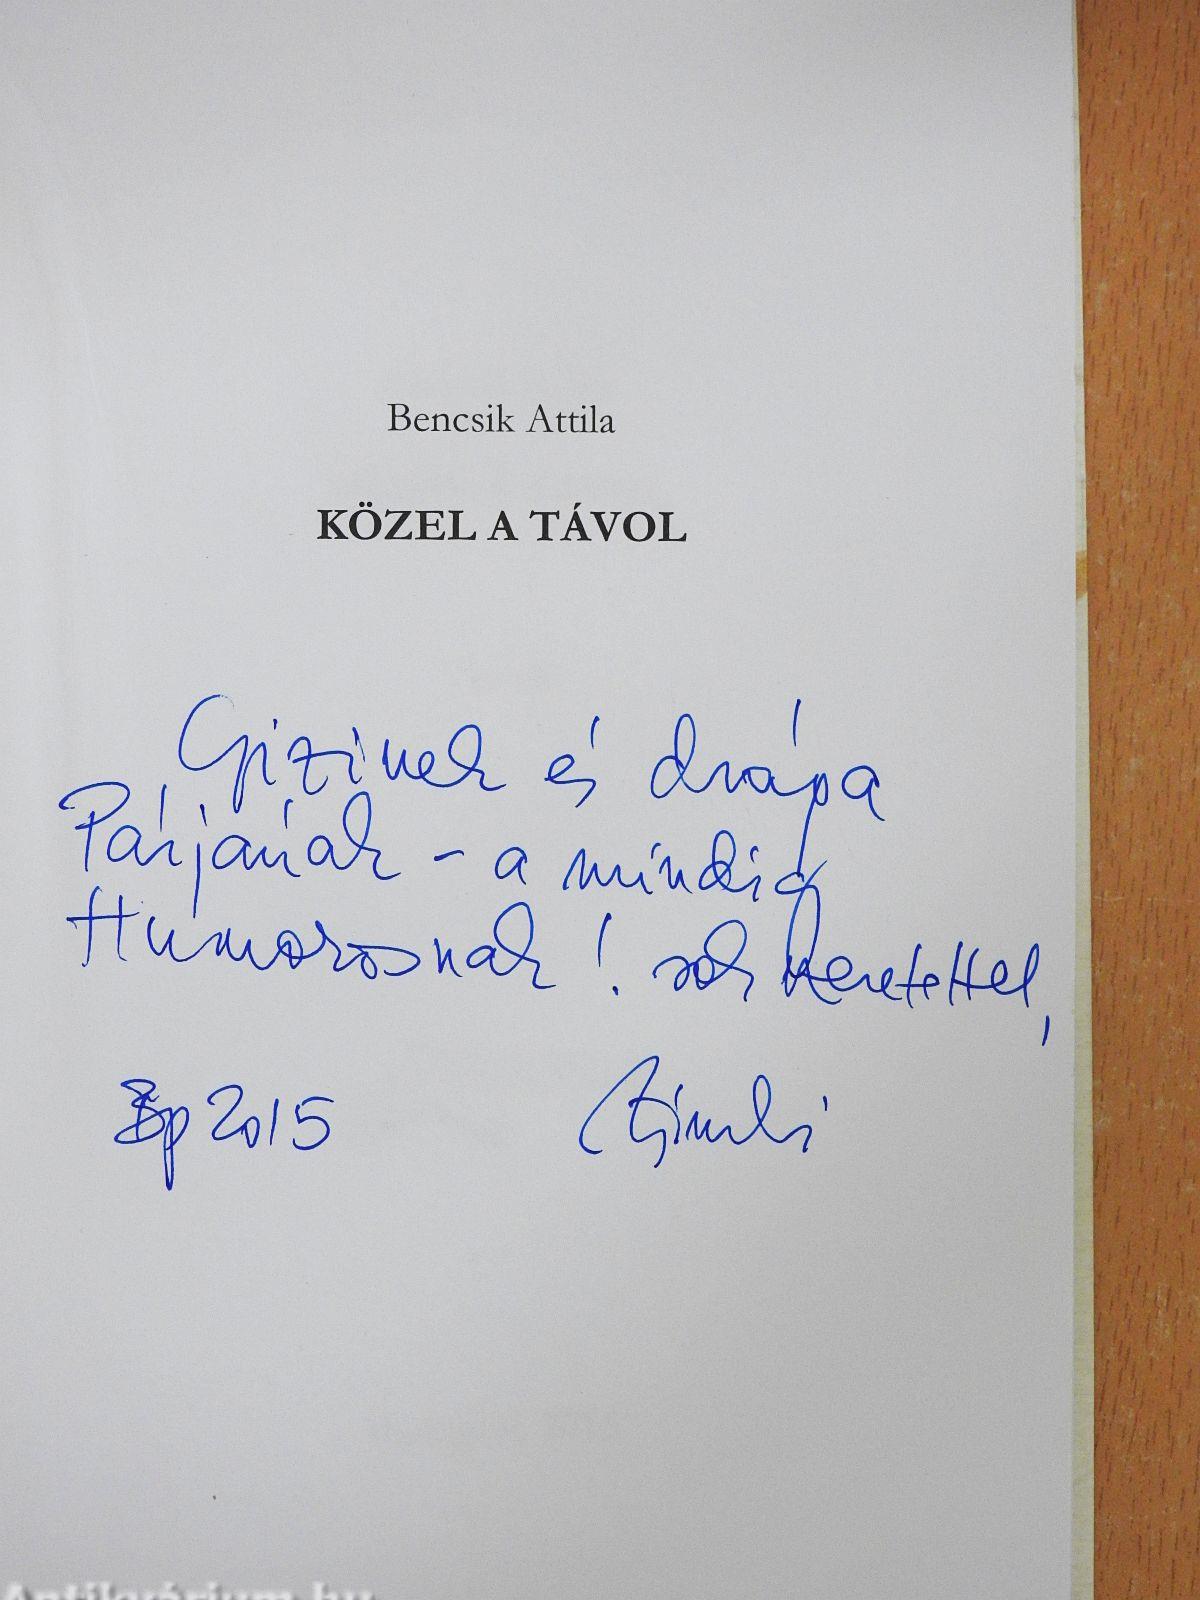 Bencsik Attila
KÖZEL A TÁVOL
Gizinek és drápa
Párjának - a mindig
Humorosnak! sok szeretettel,
Bp 2015
Antikvárium.hu